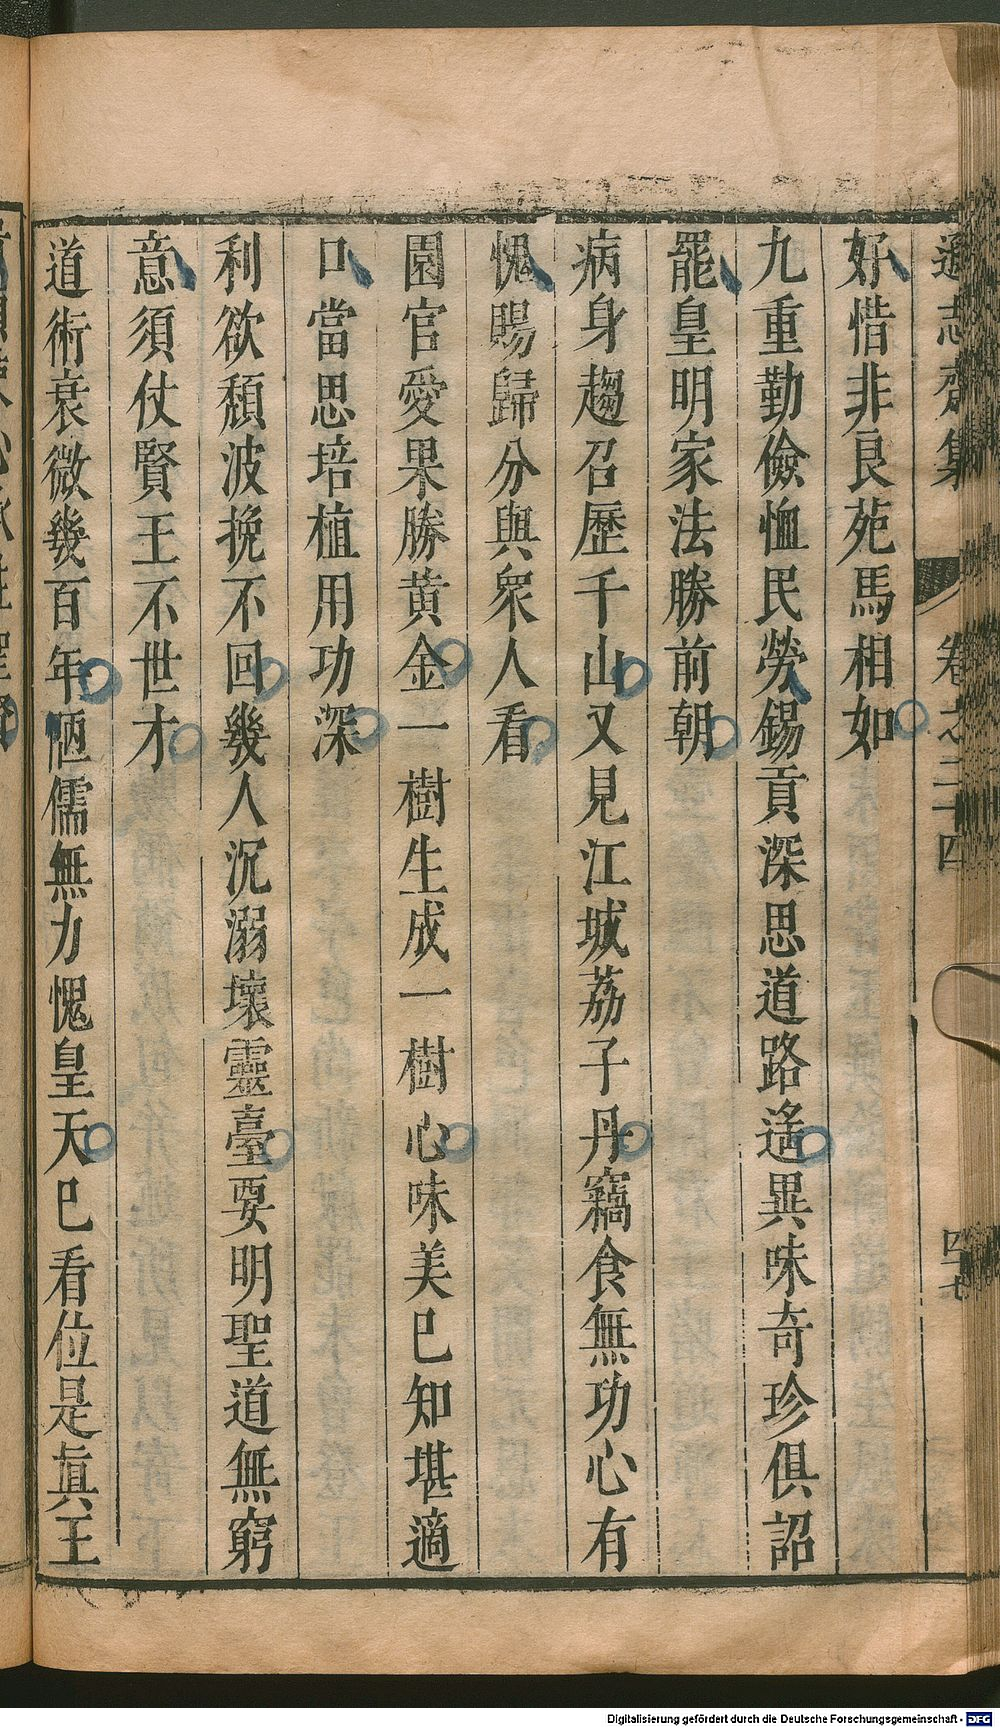 遜志齋集 卷之二十四 四七
好惜非良苑馬相如
九重勤儉恤民勞錫貢深思道路遙異味奇珍俱詔
罷皇明家法勝前朝
病身趨召歷千山又見江城荔子丹竊食無功心有
愧賜歸分與衆人看
園官愛果勝黄金一樹生成一樹心味美已知堪適
口當思培植用功深
利欲頹波挽不回幾人沉溺壞靈臺要明聖道無窮
意須仗賢王不世才
道術衰微幾百年陋儒無力愧皇天已看位是眞王
Digitalisierung gefördert durch die Deutsche Forschungsgemeinschaft - DFG